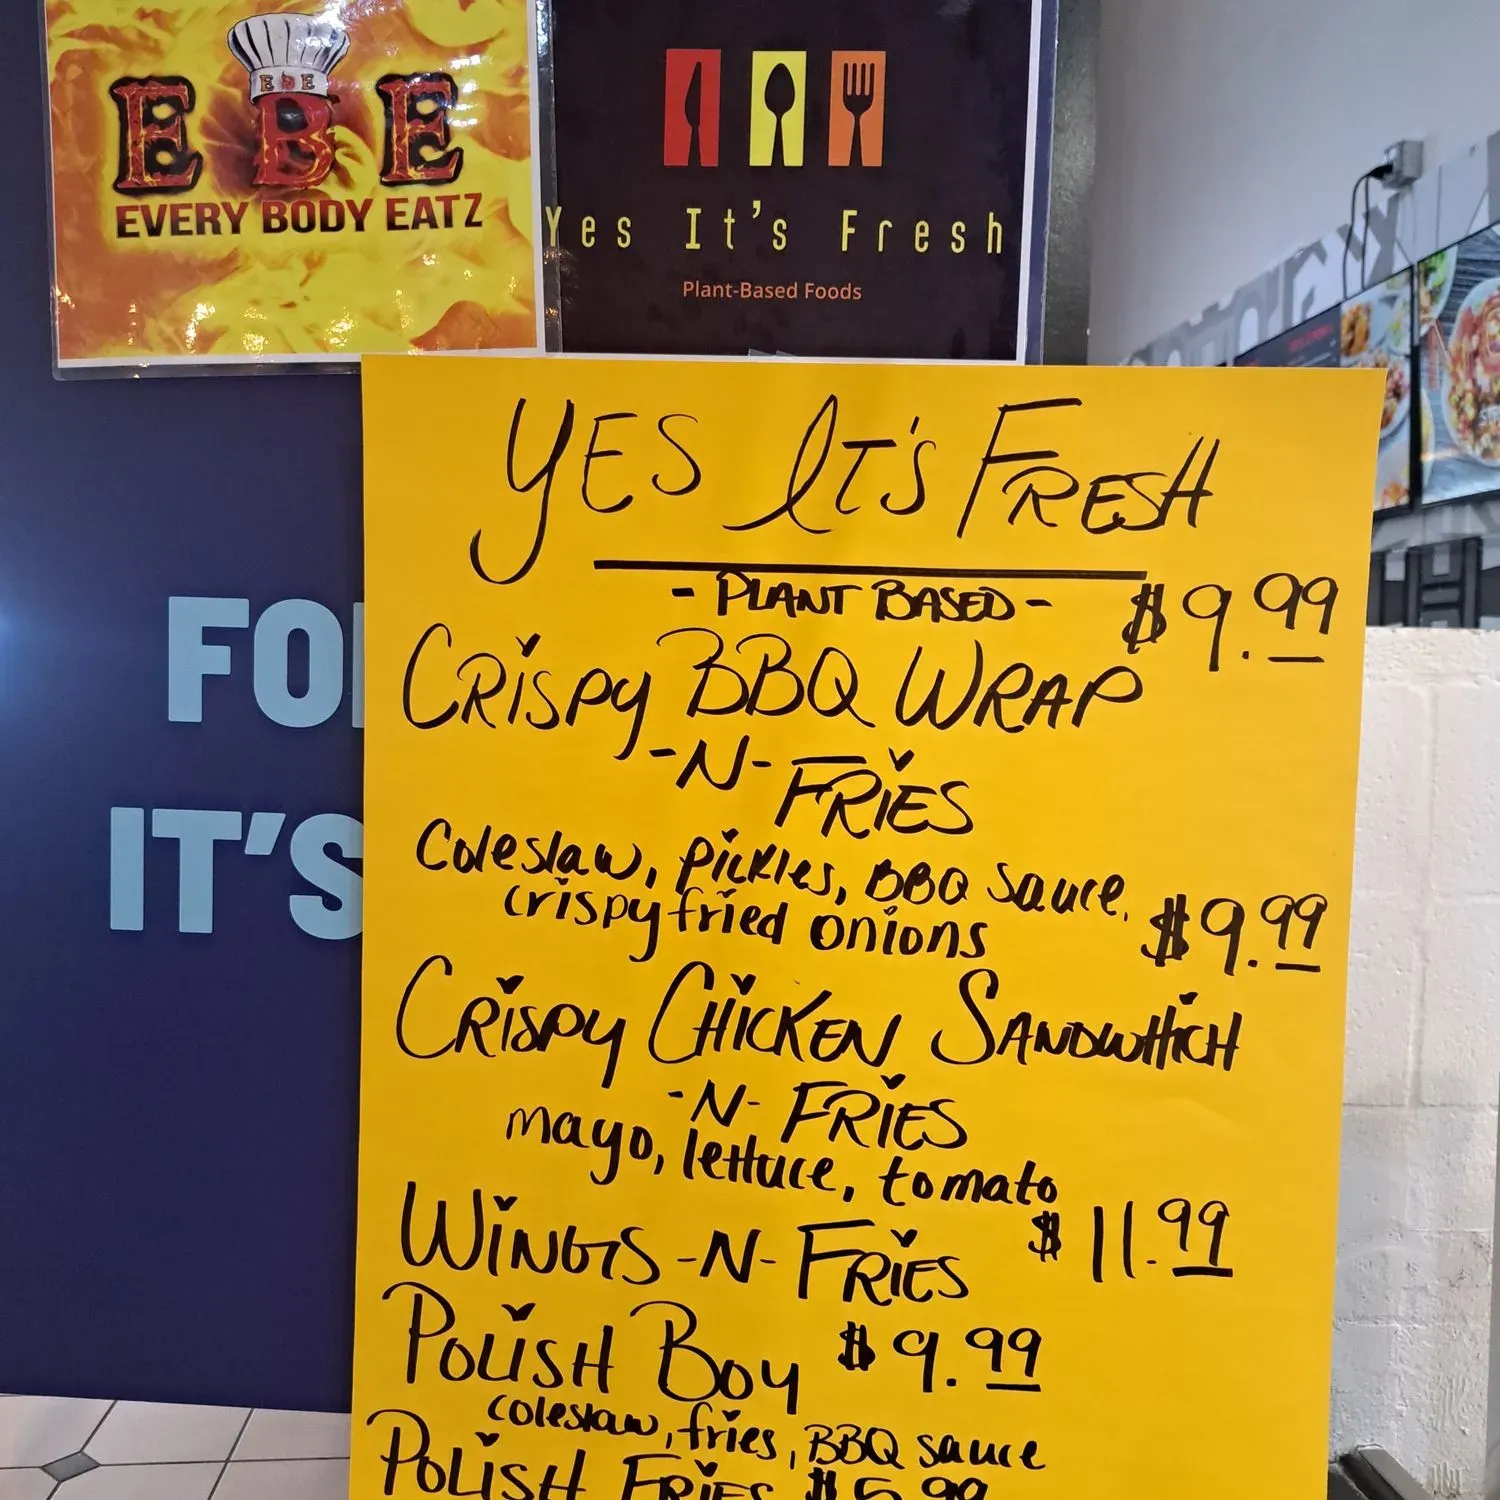 EBE
EBE
EVERY BODY EATZ
Yes It's Fresh
Plant-Based Foods
FO
IT'S
YES IT'S FRESH
- PLANT BASED - $9.99
CRISPY BBQ WRAP
-N- FRIES
Coleslaw, pickles, BBQ sauce,
crispy fried onions $9.99
CRISPY CHICKEN SANDWHICH
-N- FRIES
mayo, lettuce, tomato
WINGS -N- FRIES $11.99
POLISH BOY $9.99
coleslaw, fries, BBQ sauce
POLISH FRIES $5.99